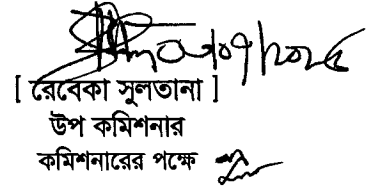 [ রেবেকা সুলতানা ]
উপ কমিশনার
কমিশনারের পক্ষে